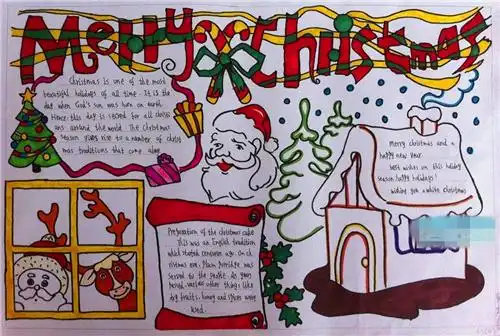 Merry Christmas
Christmas is one of the most
beautiful holidays of all time. It is the
day when God's son was born on earth.
Hence, this day is sacred for all christ
ians around the world. The Christmas
season gives rise to a number of christ
mas traditions that come alone
Merry christmas and a
happy new year.
best wishes on this holiday
season. happy holidays!
wishing you a white christmas
Preparation of the christmas cake
This was an English tradition
which started centuries ago. On ch
ristmas eve, Plum Porridge was
served to the people. As years
passed, various other things, like
dry fruits, honey and spices were